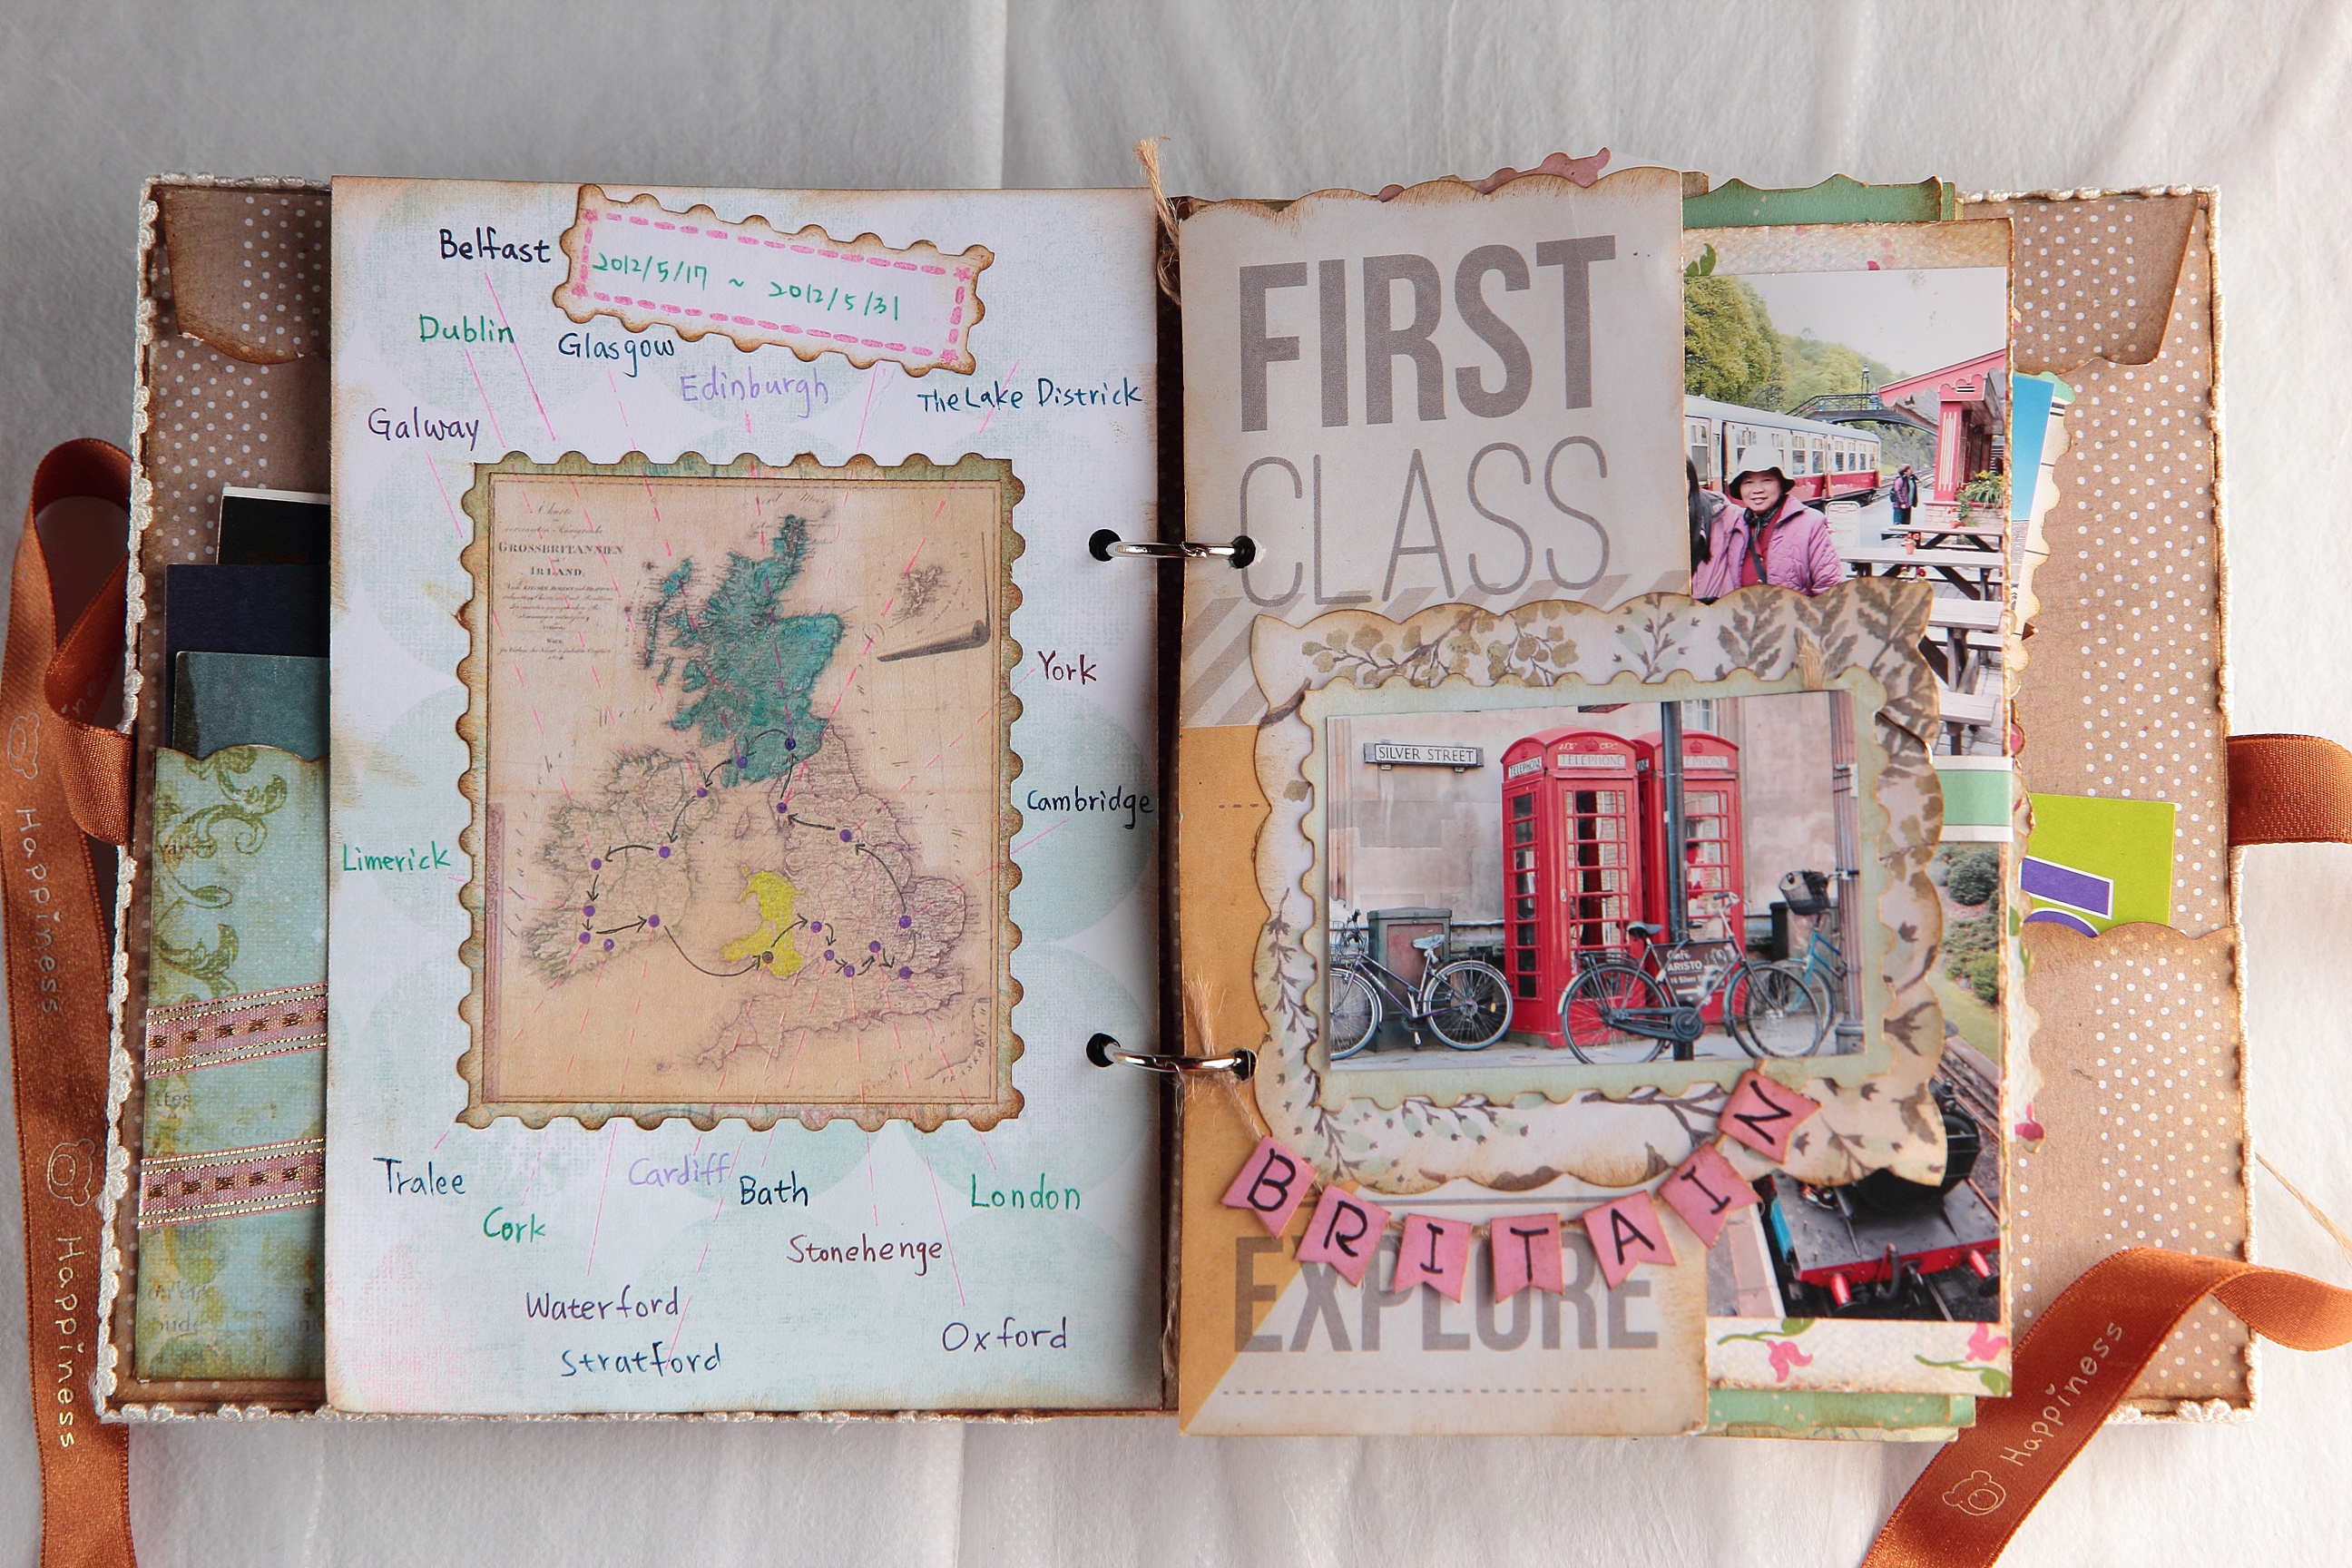 Belfast
2012/5/17 ~ 2012/5/31
Dublin
Glasgow
Edinburgh
The Lake Districk
Galway
GROSSBRITANNIEN
IRLAND
York
Cambridge
Limerick
Tralee
Cardiff
Bath
London
Cork
Stonehenge
Waterford
Oxford
Stratford
FIRST
CLASS
SILVER STREET
TELEPHONE
TELEPHONE
TELEPHONE
Café
ARISTO
BRITAIN
EXPLORE
Happiness
Happiness
Happiness